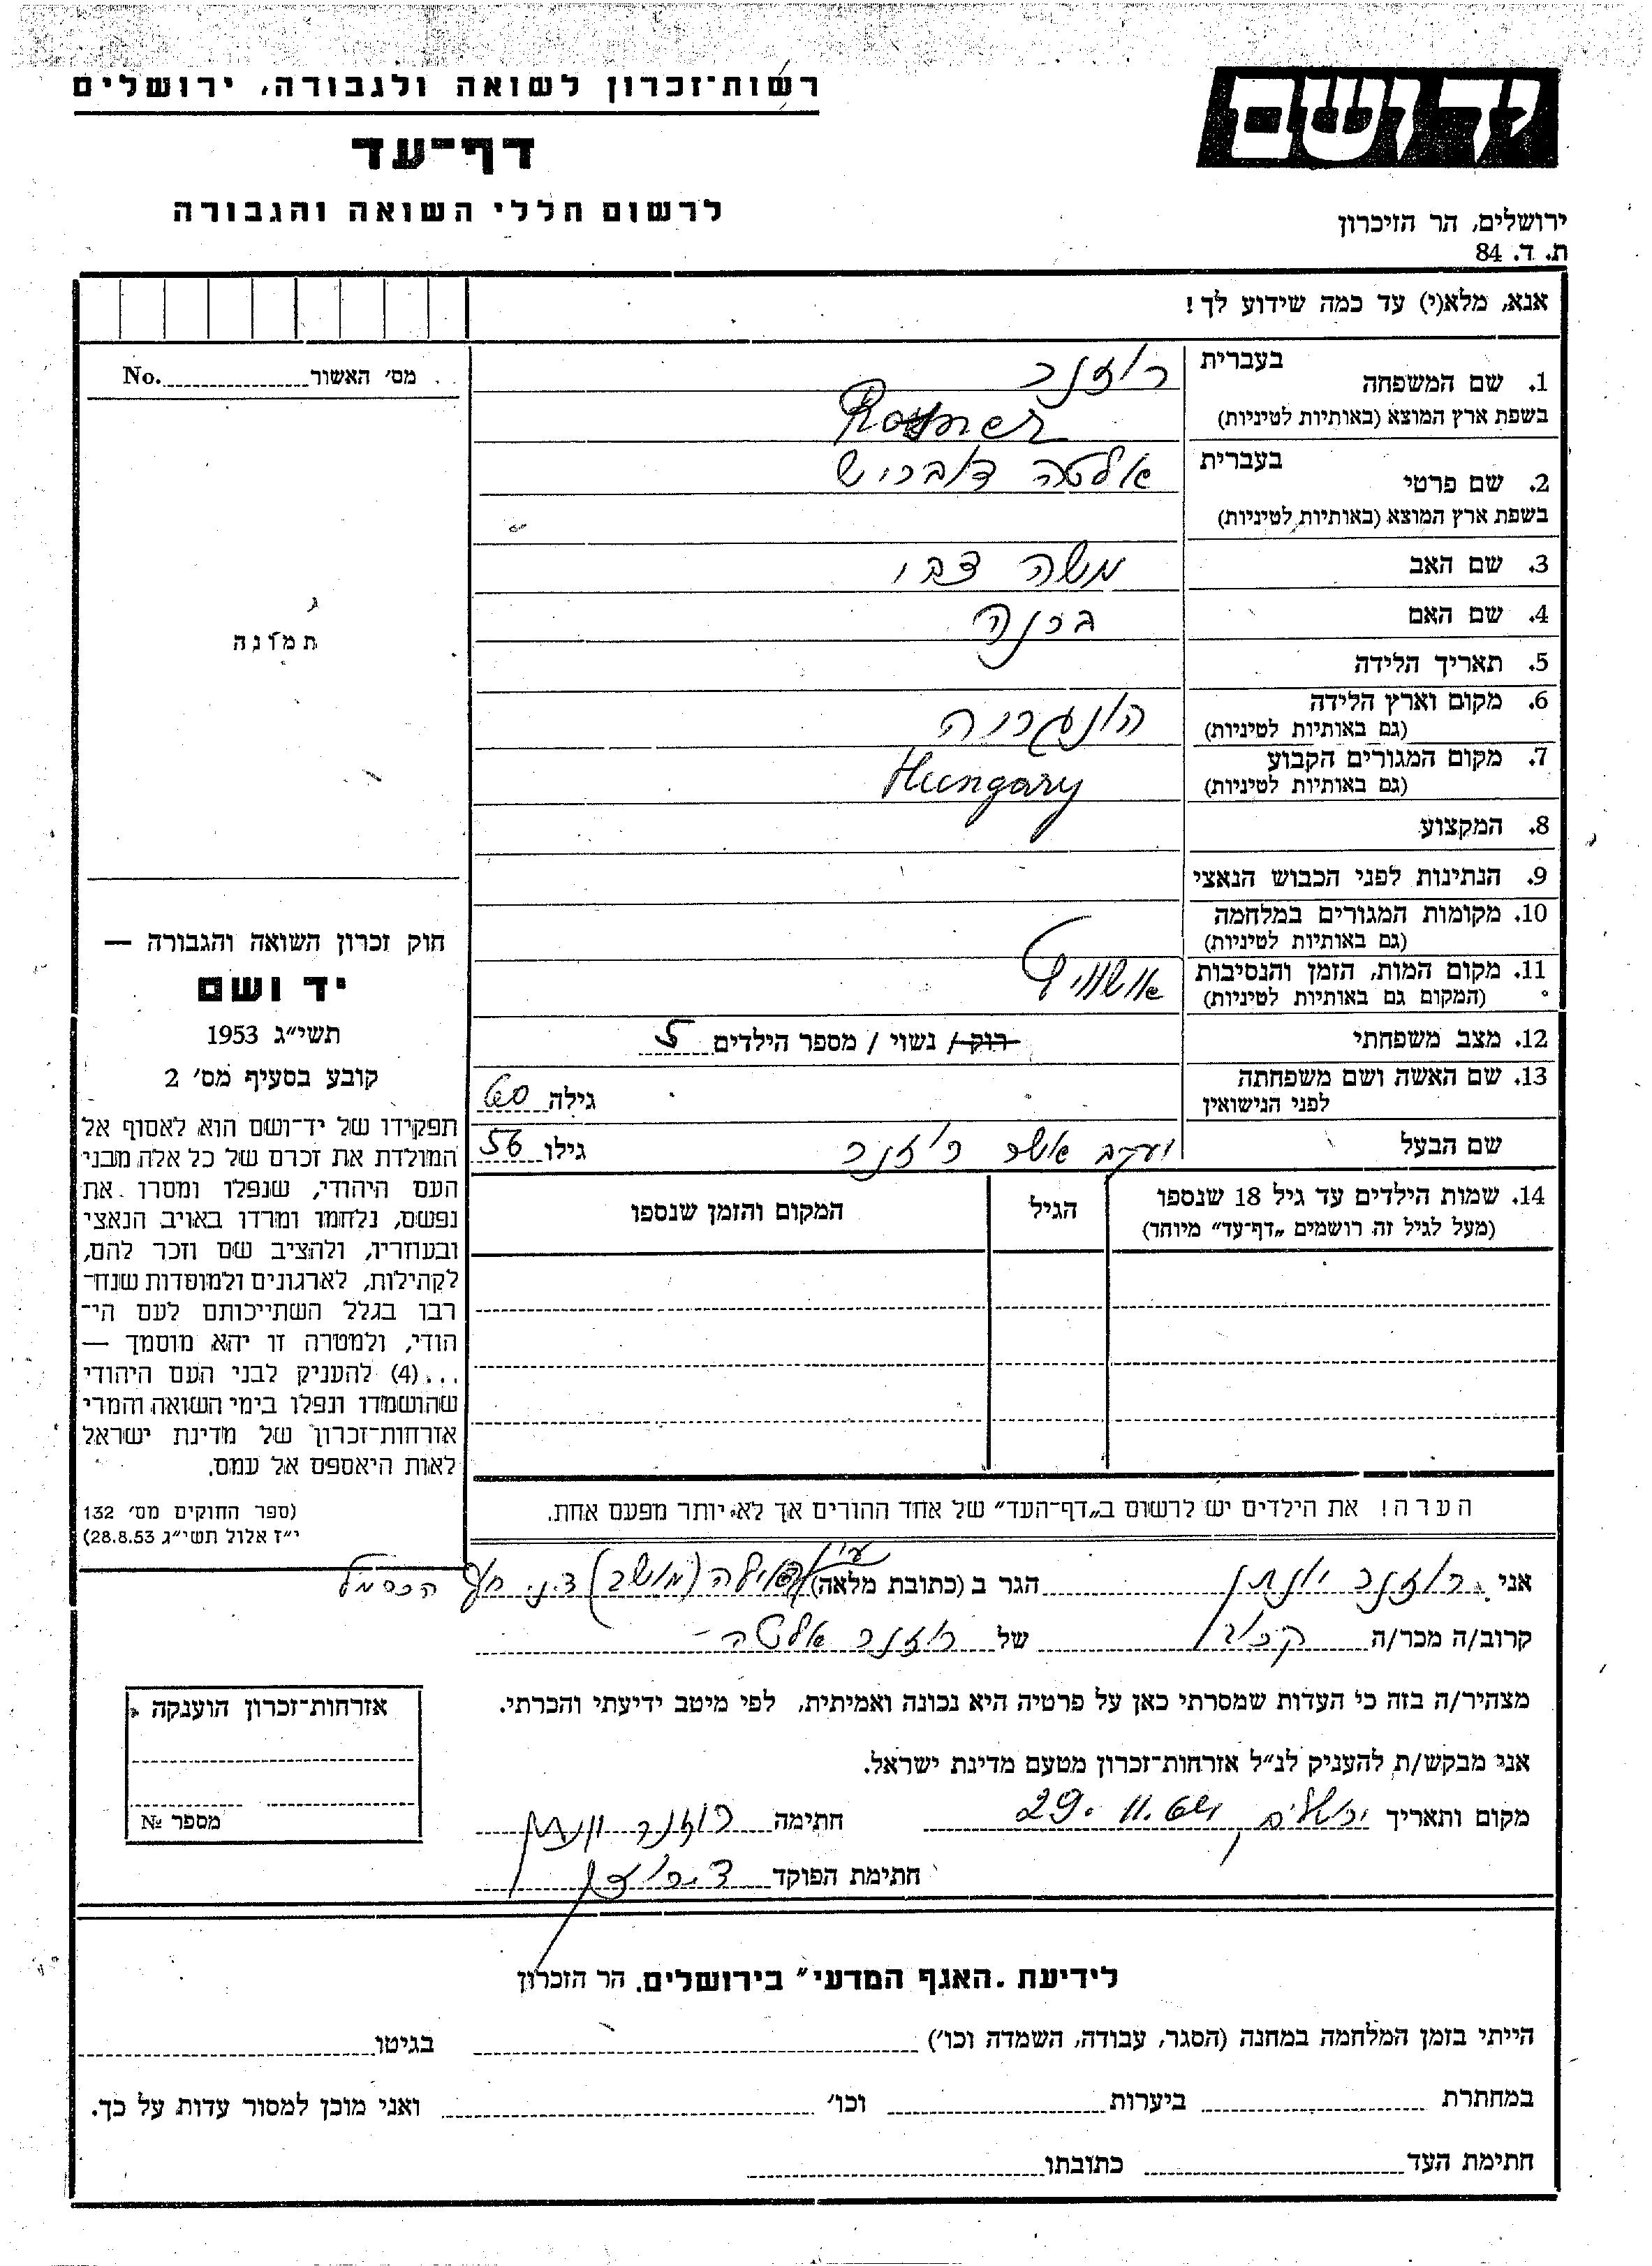 רשות־זכרון לשואה ולגבורה, ירושלים
דף־עד
לרשום חללי השואה והגבורה
ידושם
ירושלים, הר הזיכרון
ת. ד. 84
אנא, מלא(י) עד כמה שידוע לך!
מס׳ האשור No.
תמונה
1. שם המשפחה בעברית רוזנר
בשפת ארץ המוצא (באותיות לטיניות) Rosner
2. שם פרטי בעברית אלטה דוברוש
בשפת ארץ המוצא (באותיות לטיניות)
3. שם האב משה צבי
4. שם האם
5. תאריך הלידה
6. מקום וארץ הלידה הונגריה
(גם באותיות לטיניות)
7. מקום המגורים הקבוע Hungary
(גם באותיות לטיניות)
8. המקצוע
9. הנתינות לפני הכבוש הנאצי
10. מקומות המגורים במלחמה
(גם באותיות לטיניות)
11. מקום המות, הזמן והנסיבות אושוויץ
(המקום גם באותיות לטיניות)
12. מצב משפחתי רוק / נשוי / מספר הילדים 5
13. שם האשה ושם משפחתה גילה 60
לפני הנישואין
שם הבעל יעקב אשר רוזנר גילו 56
14. שמות הילדים עד גיל 18 שנספו הגיל המקום והזמן שנספו
(מעל לגיל זה רושמים „דף־עד״ מיוחד)
חוק זכרון השואה והגבורה —
יד ושם
תשי״ג 1953
קובע בסעיף מס׳ 2
תפקידו של יד־ושם הוא לאסוף אל
המולדת את זכרם של כל אלה מבני
העם היהודי, שנפלו ומסרו את
נפשם, נלחמו ומרדו באויב הנאצי
ובעוזריו, ולהציב שם וזכר להם,
לקהילות, לארגונים ולמוסדות שנח־
רבו בגלל השתייכותם לעם הי־
הודי, ולמטרה זו יהא מוסמך —
...(4) להעניק לבני העם היהודי
שהושמדו ונפלו בימי השואה והמרי
אזרחות־זכרון של מדינת ישראל
לאות היאספם אל עמם.
(ספר החוקים מס׳ 132
י״ז אלול תשי״ג 28.8.53)
הערה! את הילדים יש לרשום ב„דף־העד״ של אחד ההורים אך לא יותר מפעם אחת.
אני רוזנר יונתן הגר ב (כתובת מלאה) (מושב) ד.נ. הכרמל
קרוב/ה מכר/ה קרוב של רוזנר אלטה
מצהיר/ה בזה כי העדות שמסרתי כאן על פרטיה היא נכונה ואמיתית, לפי מיטב ידיעתי והכרתי.
אני מבקש/ת להעניק לנ״ל אזרחות־זכרון מטעם מדינת ישראל.
מקום ותאריך ירושלים 29.11.64 חתימה רוזנר יונתן
חתימת הפוקד
אזרחות־זכרון הוענקה
מספר №
לידיעת „האגף המדעי״ בירושלים, הר הזכרון
הייתי בזמן המלחמה במחנה (הסגר, עבודה, השמדה וכו׳) בגיטו
במחתרת ביערות וכו׳ ואני מוכן למסור עדות על כך.
חתימת העד כתובתו